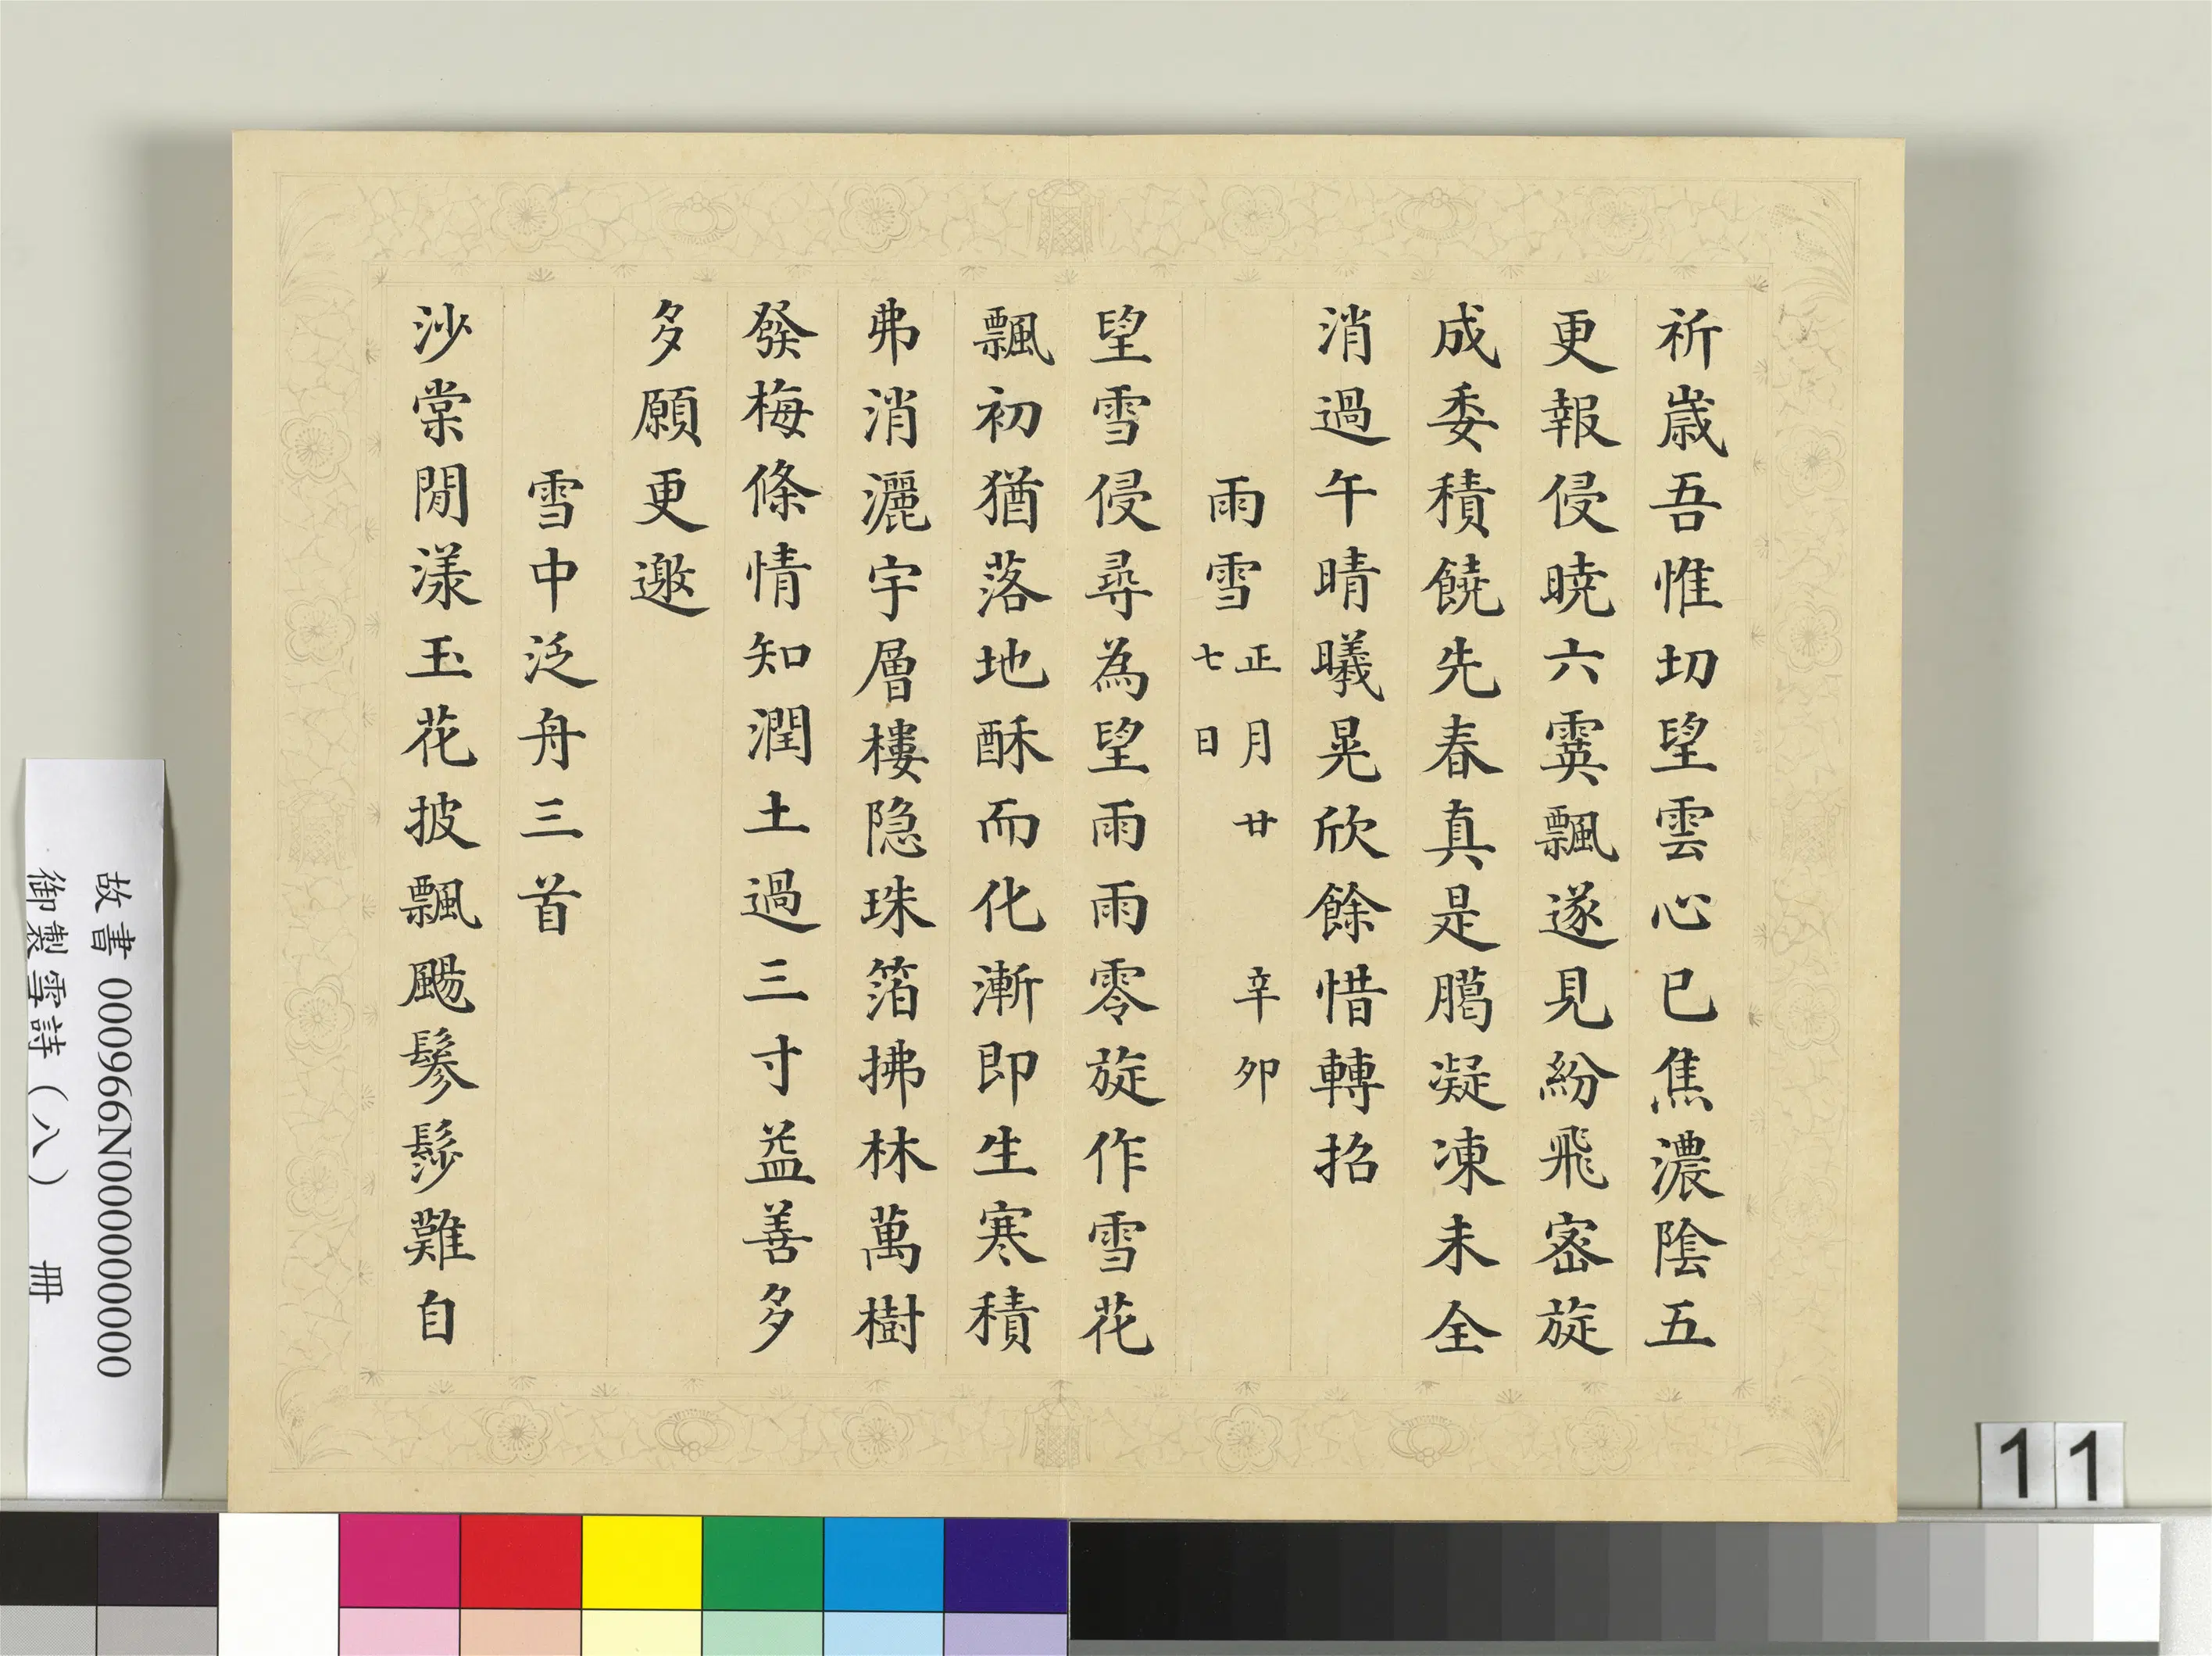 祈歲吾惟切望雲心已焦濃陰五
更報侵曉六霙飄遂見紛飛密旋
成委積饒先春真是臈凝凍未全
消過午晴曦晃欣餘惜轉招
雨雪
正月廿 辛卯
七日
望雪侵尋為望雨雨零旋作雪花
飄初猶落地酥而化漸即生寒積
弗消灑宇層樓隐珠箔拂林萬樹
發梅條情知潤土過三寸益善多
多願更邀
雪中泛舟三首
沙棠閒漾玉花披飄颺鬖髿難自
故書 000966N000000000
御製雪詩(八) 冊
11